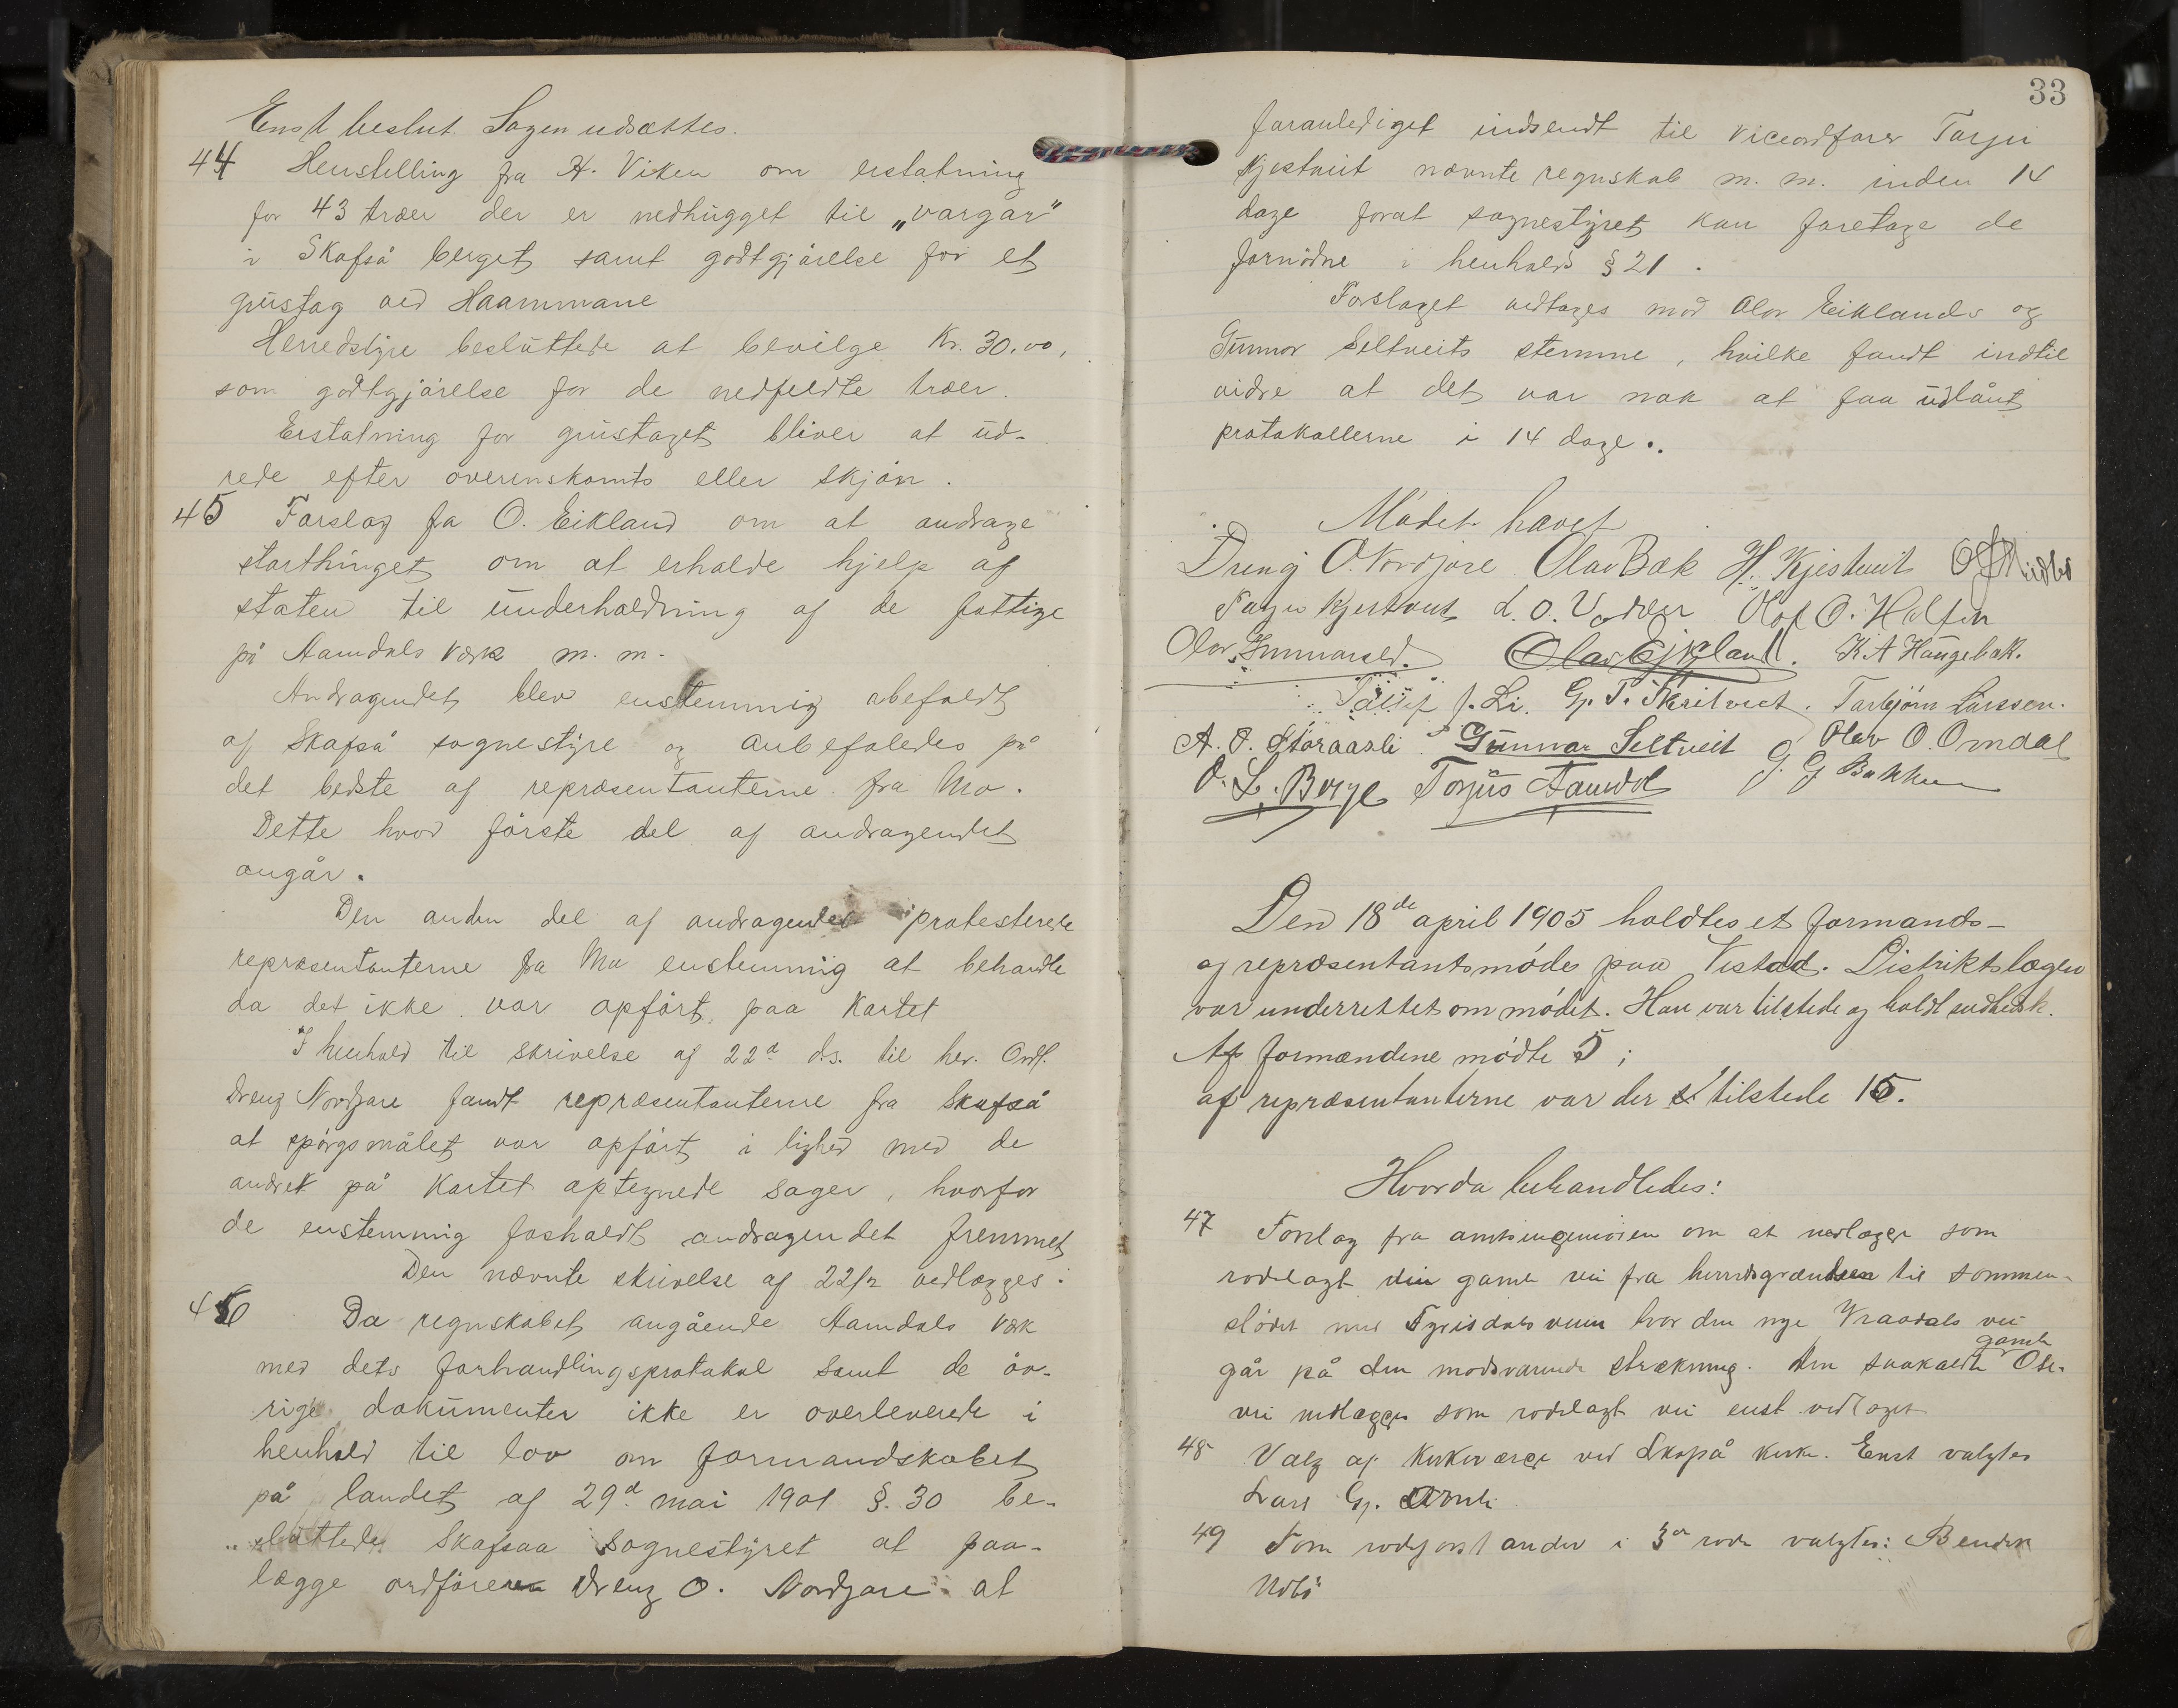 Enst beslut. Sagen udsættes.
44 Henstilling fra H. Viken om erstatning
for 43 træer der er nedhugget til „vargar"
i Skafså berget samt godtgjørelse for et
grustag ved Haammane
Herredstyre besluttede at bevilge Kr. 30.00,
som godtgjørelse for de nedfeldte træer.
Erstatning for grustaget bliver at ud-
rede efter overenskomts eller skjøn.
45 Forslag fa O. Eikland om at andrage
storthinget om at erholde hjelp af
staten til underholdning af de fattige
på Aamdals værk m. m.
Andragendet blev enstemmig abefaldt
af Skafså sognestyre og anbefaledes på
det bedste af repræsentanterne fra Mo.
Dette hvad første del af andragendet
angår.
Den anden del af andragendet protesterede
repræsentanterne fra Mo enstemmig at behandle
da det ikke var opført paa kartet
I henhold til skrivelse af 22d ds. til her. Ordf.
Dreng Nordjore fandt repræsentanterne fra Skafså
at spørgsmålet var opført i lighed med de
andret på kartet optegnede sager, hvorfor
de enstemmig fosholdt andragendet fremmet
Den nævnte skrivelse af 22/2 vedlægges.
46 Da regnskabet angående Aamdals værk
med dets forhandlingsprotokol samt de øv-
rige dokumenter ikke er overleverede i
henhold til lov om formandskabet
på landet af 29d mai 1901 §. 30 be-
sluttede Skafsaa Sognestyret at paa-
lægge ordføreren Dreng O. Nordjore at
33
foranlediget indsendt til viceordfører Tarjei
Kjestveit nævnte regnskab m. m. inden 14
dage forat sognestyret kan foretage de
fornødne i henhold § 21.
Forslaget vedtages mod Olav Eiklands og
Gunnar Seltveits stemme, hvilke fandt indtil
vidre at det var nok at faa udlånt
protokollerne i 14 dage.
Mødet hævet
Dreng O. Nordjore Olav Bæk H. Kjestveit
Tarjei Kjestveit Olaf O.
Olav Gunnarsld. Olav Eikland. K A Haugebak.
J. Li. Gj. T. Skeitveit. Torbjørn Larssen.
A. O. Storaasli Gunnar Seltveit Olav O. Omdal
O. L. Berge Torjus Aamdal G. G Bakken
Den 18de april 1905 holdtes et formands-
og repræsentantsmøde paa Vistad. Distriktslægen
var underrettet om mødet. Han var tilstede og holdt sudhedsk.
Af formændene mødte 5;
af repræsentanterne var der tilstede 15.
Hvorda behandledes:
47 Forslag fra amtsingeniøren om at nedlægge som
rodelagt den gamle vei fra herredsgrændsen til sammen-
stødet med Fyrisdals veien hvor den nye Vraadals vei
går på den modsvarende strækning. Den saakaldte gamle Ose-
vei nedlægges som rodelagt vei enst vedtaget
48 Valg af kirkeværge ved Skafså kirke. Enst valgtes
Lars Gj.
49 Som rodeforstander i 3die rode valgtes: Bendik
Udbø